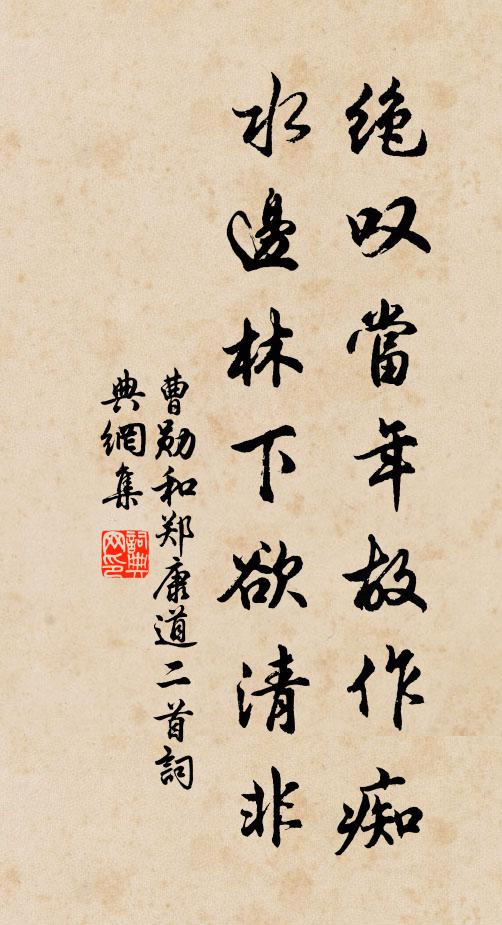 绝叹當年故作痴
水邊林下欲清非
曹勋和郑康道二首詞
典網集
詞典网印